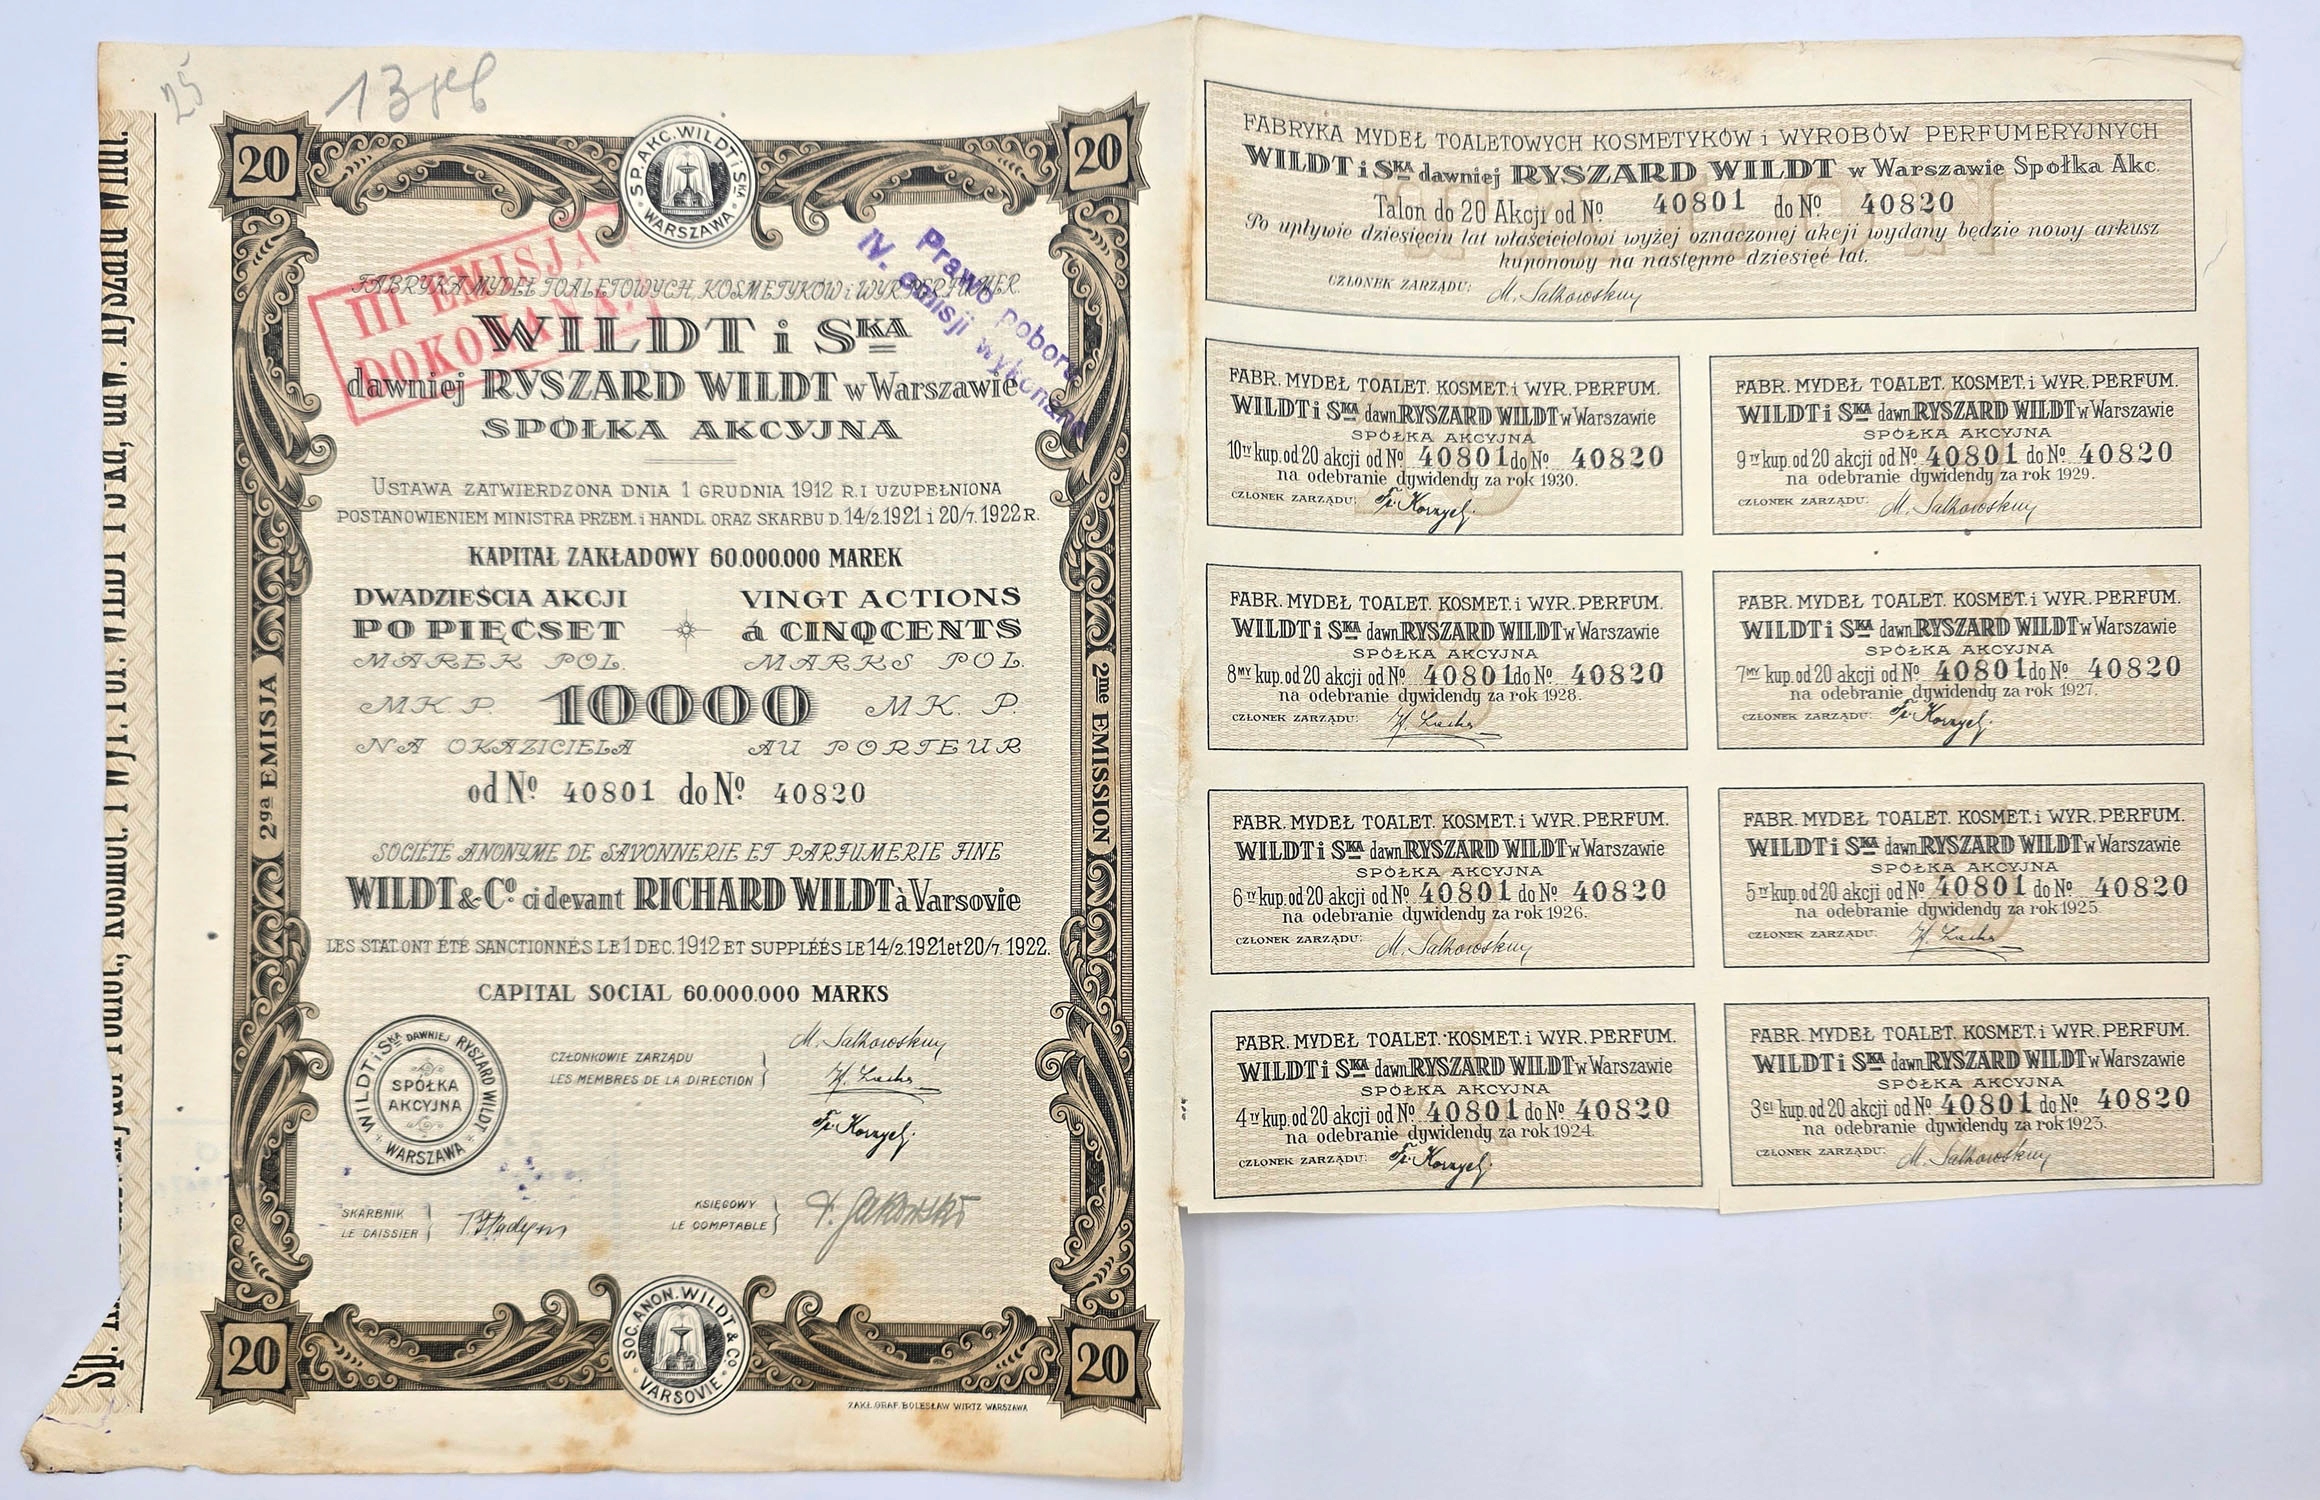 25
20
SP. AKC. WILDT i SKA
WARSZAWA
20
III EMISJA
DOKONANA
Prawo poboru
IV. emisji wykonano
FABRYKA MYDEŁ TOALETOWYCH, KOSMETYKÓW i WYR. PERFUMER.
WILDT i SKA
dawniej RYSZARD WILDT w Warszawie
SPÓŁKA AKCYJNA
USTAWA ZATWIERDZONA DNIA 1 GRUDNIA 1912 R. I UZUPEŁNIONA
POSTANOWIENIEM MINISTRA PRZEM. i HANDL. ORAZ SKARBU D. 14/2. 1921 i 20/7. 1922 R.
KAPITAŁ ZAKŁADOWY 60.000.000 MAREK
DWADZIEŚCIA AKCJI
PO PIĘĆSET
MAREK POL.
VINGT ACTIONS
á CINQCENTS
MARKS POL.
MK. P. 10000 MK. P.
NA OKAZICIELA AU PORTEUR
od No 40801 do No 40820
2ga EMISJA
2me EMISSION
SOCIÉTÉ ANONYME DE SAVONNERIE ET PARFUMERIE FINE
WILDT & Co ci devant RICHARD WILDT à Varsovie
LES STAT. ONT ÉTÉ SANCTIONNÉS LE 1 DEC. 1912 ET SUPPLÉÉS LE 14/2. 1921 et 20/7. 1922.
CAPITAL SOCIAL 60.000.000 MARKS
WILDT i SKA DAWNIEJ RYSZARD WILDT
SPÓŁKA
AKCYJNA
WARSZAWA
CZŁONKOWIE ZARZĄDU
LES MEMBRES DE LA DIRECTION
M. Salkowskuy
Fr. Korzyb.
SKARBNIK
LE CAISSIER
KSIĘGOWY
LE COMPTABLE
20
SOC. ANON. WILDT & Co.
VARSOVIE
20
ZAKŁ. GRAF. BOLESŁAW WIRTZ WARSZAWA
FABRYKA MYDEŁ TOALETOWYCH KOSMETYKÓW i WYROBÓW PERFUMERYJNYCH
WILDT i SKA dawniej RYSZARD WILDT w Warszawie Spółka Akc.
Talon do 20 Akcji od No 40801 do No 40820
Po upływie dziesięciu lat właścicielowi wyżej oznaczonej akcji wydany będzie nowy arkusz
kuponowy na następne dziesięć lat.
CZŁONEK ZARZĄDU: M. Salkowskuy
FABR. MYDEŁ TOALET. KOSMET. i WYR. PERFUM.
WILDT i SKA dawn. RYSZARD WILDT w Warszawie
SPÓŁKA AKCYJNA
10ty kup. od 20 akcji od No 40801 do No 40820
na odebranie dywidendy za rok 1930.
CZŁONEK ZARZĄDU: Fr. Korzyb.
FABR. MYDEŁ TOALET. KOSMET. i WYR. PERFUM.
WILDT i SKA dawn. RYSZARD WILDT w Warszawie
SPÓŁKA AKCYJNA
9ty kup. od 20 akcji od No 40801 do No 40820
na odebranie dywidendy za rok 1929.
CZŁONEK ZARZĄDU: M. Salkowskuy
FABR. MYDEŁ TOALET. KOSMET. i WYR. PERFUM.
WILDT i SKA dawn. RYSZARD WILDT w Warszawie
SPÓŁKA AKCYJNA
8my kup. od 20 akcji od No 40801 do No 40820
na odebranie dywidendy za rok 1928.
CZŁONEK ZARZĄDU:
FABR. MYDEŁ TOALET. KOSMET. i WYR. PERFUM.
WILDT i SKA dawn. RYSZARD WILDT w Warszawie
SPÓŁKA AKCYJNA
7my kup. od 20 akcji od No 40801 do No 40820
na odebranie dywidendy za rok 1927.
CZŁONEK ZARZĄDU: Fr. Korzyb.
FABR. MYDEŁ TOALET. KOSMET. i WYR. PERFUM.
WILDT i SKA dawn. RYSZARD WILDT w Warszawie
SPÓŁKA AKCYJNA
6ty kup. od 20 akcji od No 40801 do No 40820
na odebranie dywidendy za rok 1926.
CZŁONEK ZARZĄDU: M. Salkowskuy
FABR. MYDEŁ TOALET. KOSMET. i WYR. PERFUM.
WILDT i SKA dawn. RYSZARD WILDT w Warszawie
SPÓŁKA AKCYJNA
5ty kup. od 20 akcji od No 40801 do No 40820
na odebranie dywidendy za rok 1925
CZŁONEK ZARZĄDU:
FABR. MYDEŁ TOALET. KOSMET. i WYR. PERFUM.
WILDT i SKA dawn. RYSZARD WILDT w Warszawie
SPÓŁKA AKCYJNA
4ty kup. od 20 akcji od No 40801 do No 40820
na odebranie dywidendy za rok 1924.
CZŁONEK ZARZĄDU: Fr. Korzyb.
FABR. MYDEŁ TOALET. KOSMET. i WYR. PERFUM.
WILDT i SKA dawn. RYSZARD WILDT w Warszawie
SPÓŁKA AKCYJNA
3ci kup. od 20 akcji od No 40801 do No 40820
na odebranie dywidendy za rok 1923.
CZŁONEK ZARZĄDU: M. Salkowskuy